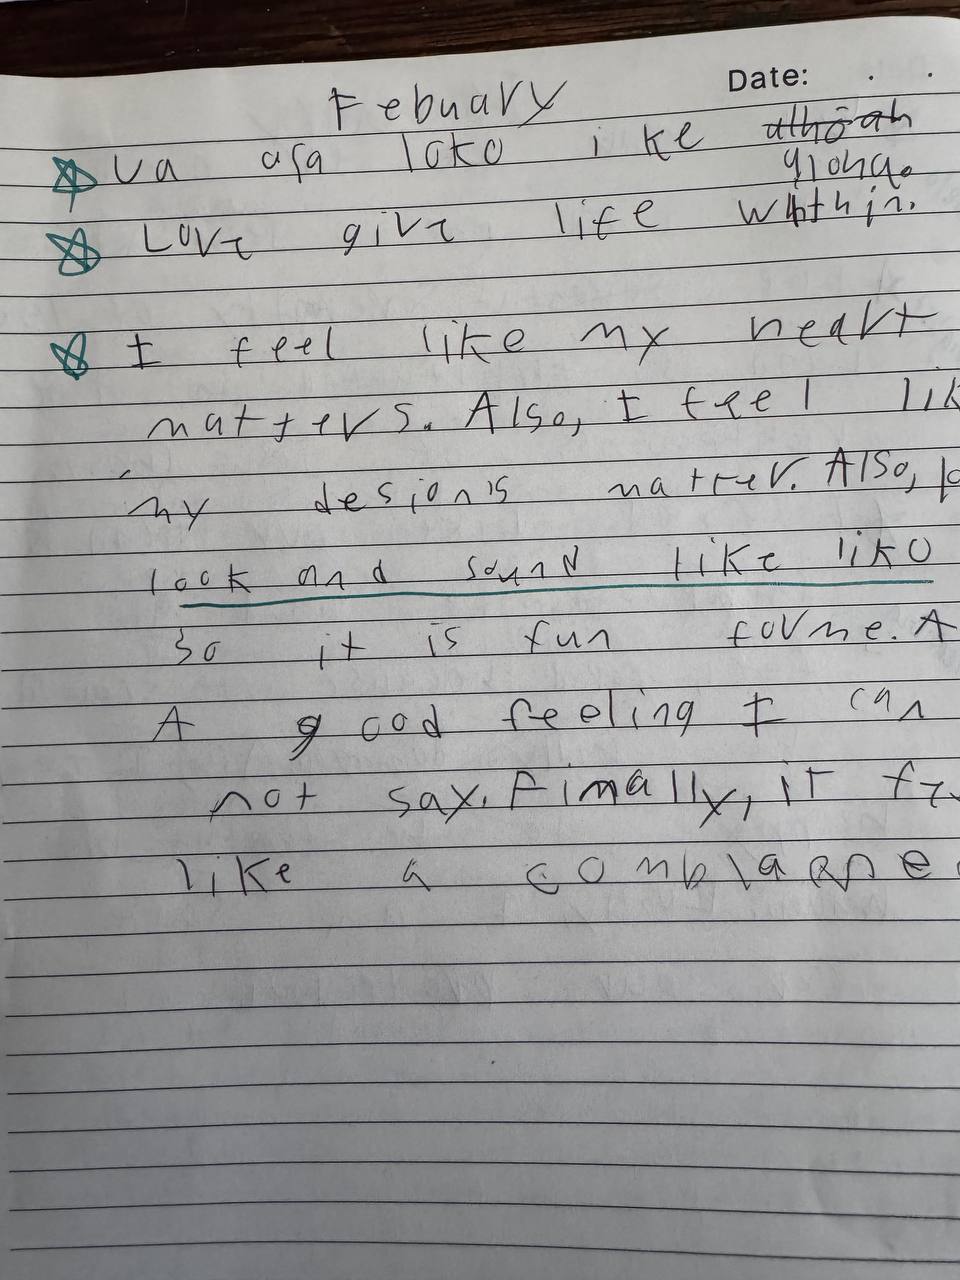 Date: . .
Febuary
va afa loko ike
Love give life
I feel like my heart
matters. Also, I feel
my desion's matter. Also,
look and sound like liko
so it is fun for me. A
A good feeling I can
not say. Finally, it
like a